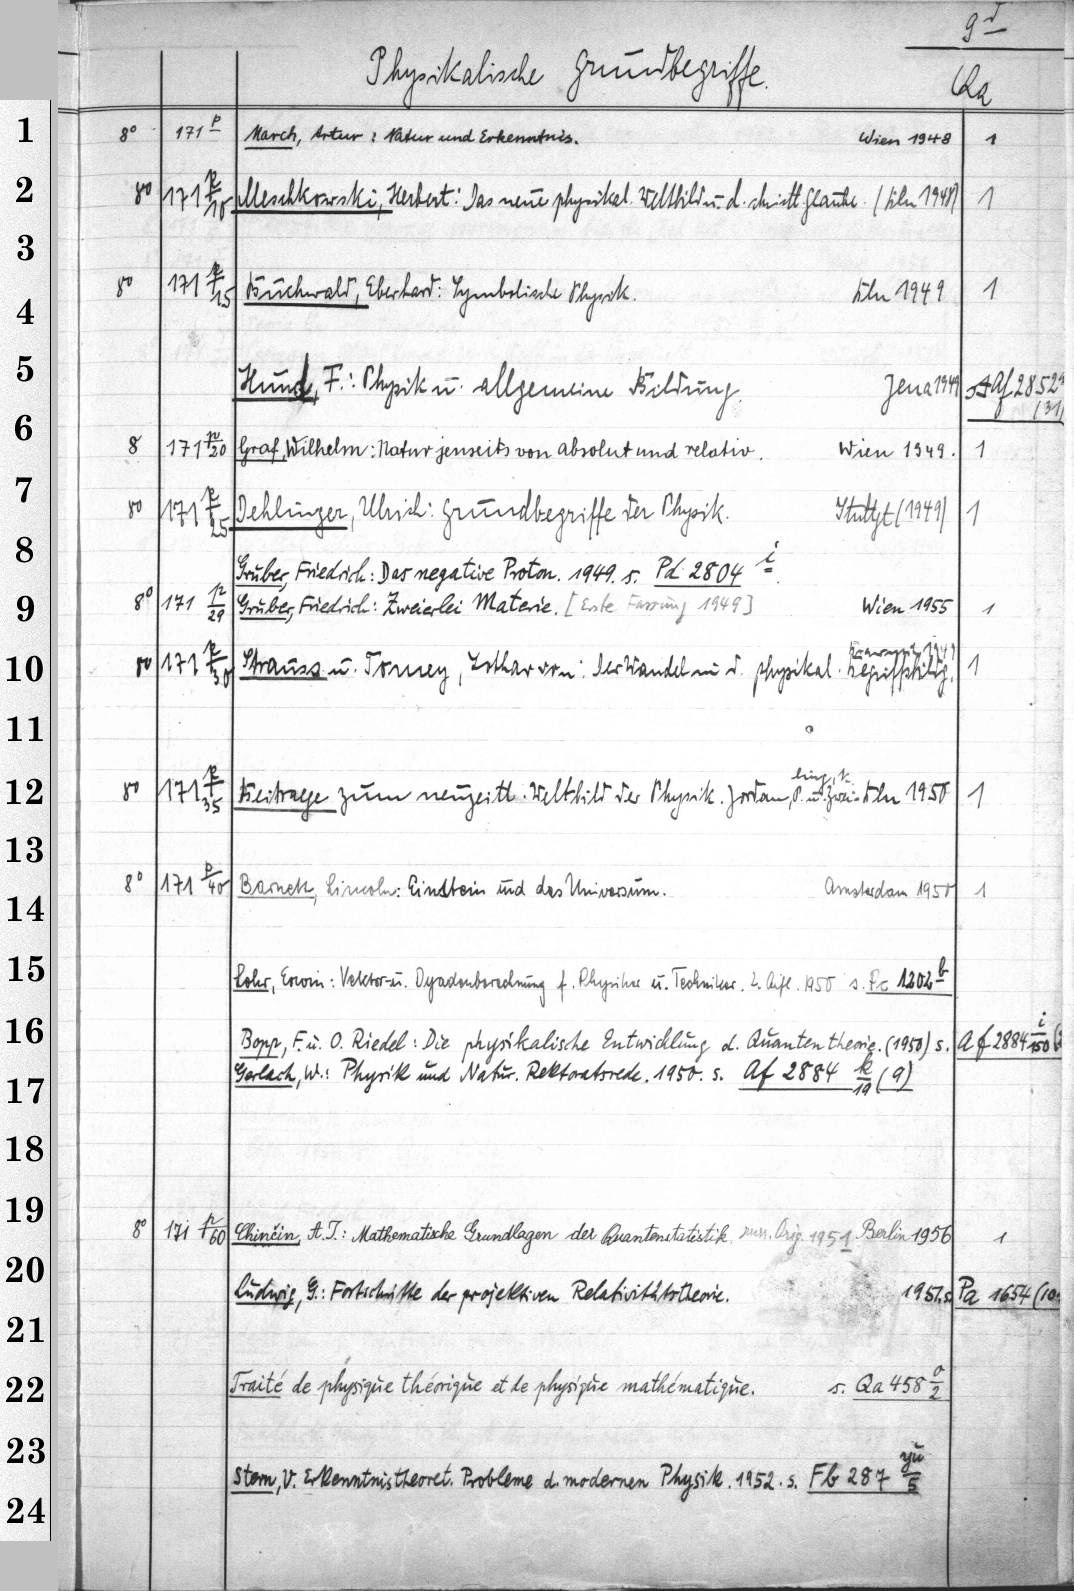 9 d
Physikalische Grundbegriffe.
Qa
1
8° 171 p March, Artur: Natur und Erkenntnis. Wien 1948 1
2
8° 171 p/10 Meschkowski, Herbert: Das neue physikal. Weltbild u. d. christl. Glaube. 1948) 1
3
8° 171 p/15 Buchwald, Eberhard: Symbolische Physik. 1949 1
4
5
Hund, F.: Physik u. allgemeine Bildung. Jena 1949 Af 2852
6
8 171 p/20 Graf, Wilhelm: Natur jenseits von absolut und relativ. Wien 1949. 1
7
8° 171 p/25 Dehlinger, Ulrich: Grundbegriffe der Physik. Stuttgt (1949) 1
8
Gruber, Friedrich: Das negative Proton. 1949. s. Pd 2804 i
9
8° 171 p/29 Gruber, Friedrich: Zweierlei Materie. [Erste Fassung 1949] Wien 1955 1
10
8° 171 p/30 Strauss u. Torney, Lothar von: Der Wandel in d. physikal. Begriffsbildg. 1
11
12
8° 171 p/35 Beiträge zum neuzeitl. Weltbild der Physik. Jordan, P. u. 1950 1
13
8° 171 p/40 Barnett, Lincoln: Einstein und das Universum. Amsterdam 1950 1
14
15
Lohr, Erwin: Vektor- u. Dyadenrechnung f. Physiker u. Techniker. 2. Aufl. 1950 s. Pc 1202 b
16
Bopp, F. u. O. Riedel: Die physikalische Entwicklung d. Quantentheorie. (1950) s. Af 2884 i/150
17
Gerlach, W.: Physik und Natur. Rektoratsrede. 1950. s. Af 2884 k/19 (9)
18
19
8° 171 p/60 Chinčin, A. J.: Mathematische Grundlagen der Quantenstatistik russ. Orig. 1951 Berlin 1956 1
20
Ludwig, G.: Fortschritte der projektiven Relativitätstheorie. 1951. s. Pa 1654 (10
21
22
Traité de physique théorique et de physique mathématique. s. Qa 458 o/2
23
Stern, V. Erkenntnistheoret. Probleme d. modernen Physik. 1952. s. Fb 287 yu/5
24